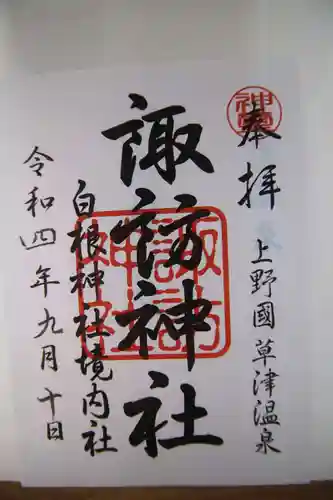 奉拝
上野國草津温泉
諏訪神社
白根神社境内社
令和四年九月十日